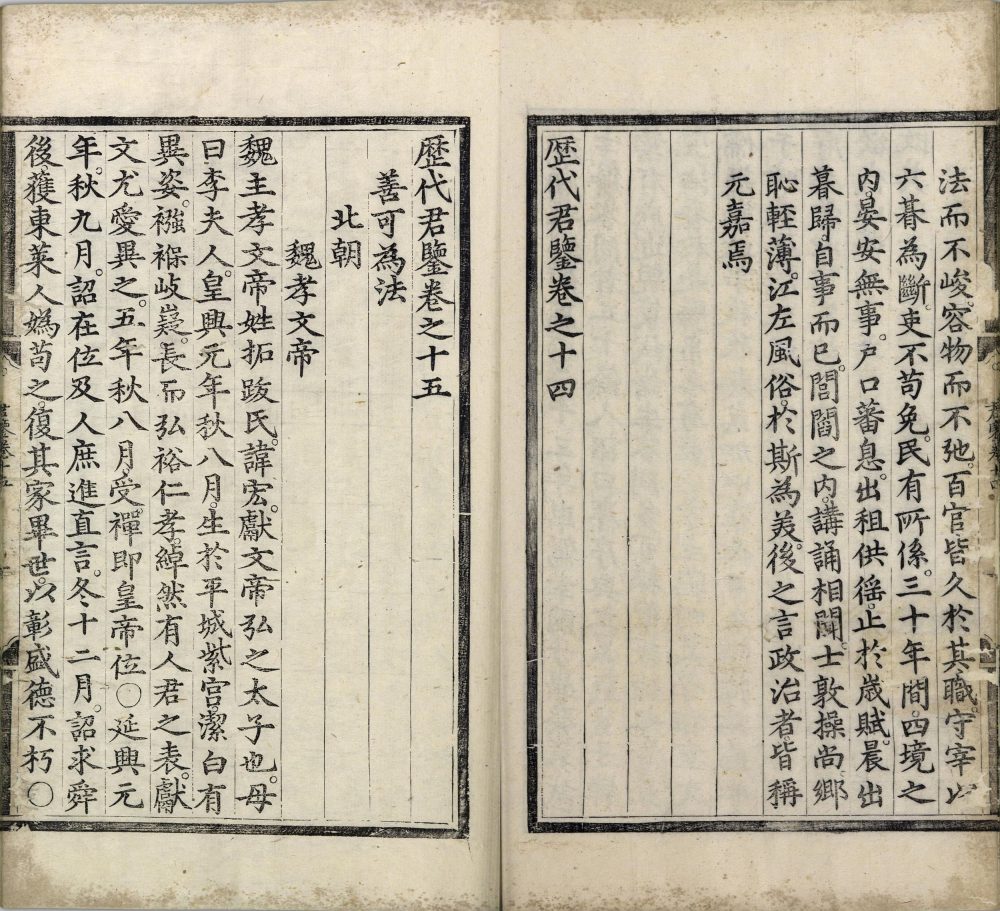 法而不峻。容物而不弛。百官皆久於其職。守宰以
六朞為斷。吏不苟免。民有所係。三十年間。四境之
內。晏安無事。戶口蕃息。出租供徭。止於歲賦。晨出
暮歸。自事而已。閭閻之內。講誦相聞。士敦操尚。鄉
恥輕薄。江左風俗。於斯為美。後之言政治者。皆稱
元嘉焉
歷代君鑒卷之十四
歷代君鑒卷之十五
善可為法
北朝
魏孝文帝
魏主孝文帝姓拓跋氏。諱宏。獻文帝弘之太子也。母
曰李夫人。皇興元年秋八月。生於平城紫宮。潔白有
異姿。襁褓岐嶷。長而弘裕仁孝。綽然有人君之表。獻
文尤愛異之。五年秋八月。受禪即皇帝位○延興元
年。秋九月。詔在位及人庶進直言。冬十二月。詔求舜
後。獲東萊人媯苟之。復其家畢世。以彰盛德不朽○